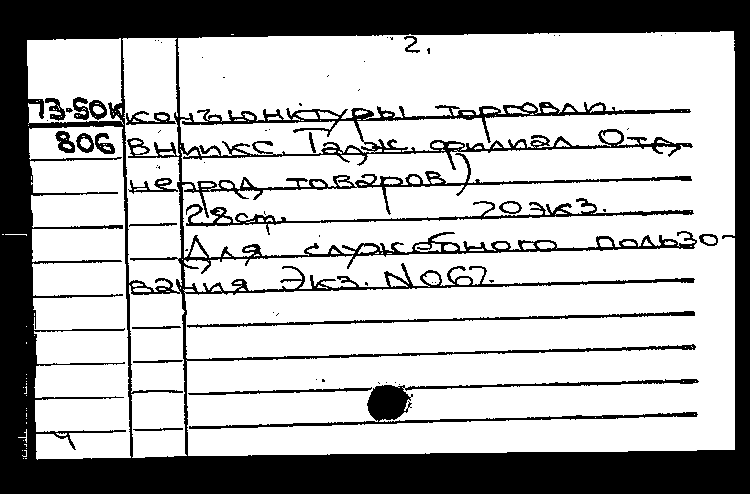 2.
73-50к конъюнктуры торговли.
806 ВНИИКС. Тадж. филиал. Отд
непрод товаров).
28ст. 70экз.
Для служебного пользо-
вания Экз. N067.